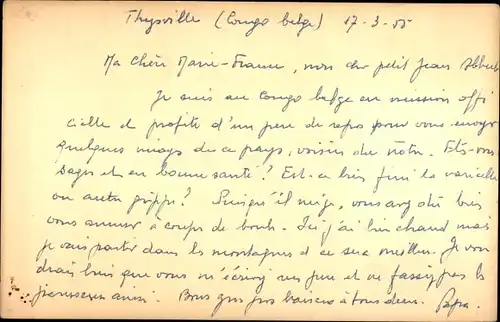 Thysville (Congo belge) 17-3-55
Ma Chère Marie-France, mon cher petit Jean
Je suis au Congo belge en mission offi
cielle et profite d'un peu de repos pour vous envoyer
quelques de ce pays, voisin du nôtre. Etes-vous
sages et en bonne santé? Est-ce bien fini la varicelle
ou autre grippe? Puisqu'il neige, vous avez dû bien
vous amuser à coups de boule. Ici j'ai bien chaud mais
je vais partir dans les montagnes et ce sera meilleur. Je vou
drais bien que vous m'écriviez un peu et ne fassiez pas les
paresseux ainsi. Bons gros gros baisers à tous deux. Papa.